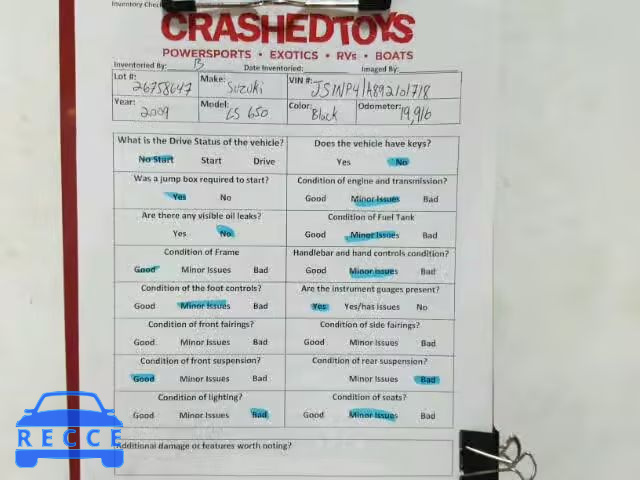 Inventory Check
CRASHEDTOYS
POWERSPORTS • EXOTICS • RVs • BOATS
Inventoried By: B Date Inventoried: Imaged By:
Lot #: 26758647 Make: Suzuki VIN #: JS1NP41A892101718
Year: 2009 Model: LS 650 Color: Black Odometer: 19,916
What is the Drive Status of the vehicle? Does the vehicle have keys?
No Start Start Drive Yes No
Was a jump box required to start? Condition of engine and transmission?
Yes No Good Minor Issues Bad
Are there any visible oil leaks? Condition of Fuel Tank
Yes No Good Minor Issues Bad
Condition of Frame Handlebar and hand controls condition?
Good Minor Issues Bad Good Minor Issues Bad
Condition of the foot controls? Are the instrument guages present?
Good Minor Issues Bad Yes Yes/has issues No
Condition of front fairings? Condition of side fairings?
Good Minor Issues Bad Good Minor Issues Bad
Condition of front suspension? Condition of rear suspension?
Good Minor Issues Bad Minor Issues Bad
Condition of lighting? Condition of seats?
Good Minor Issues Bad Good Minor Issues Bad
Additional damage or features worth noting?
RECCE